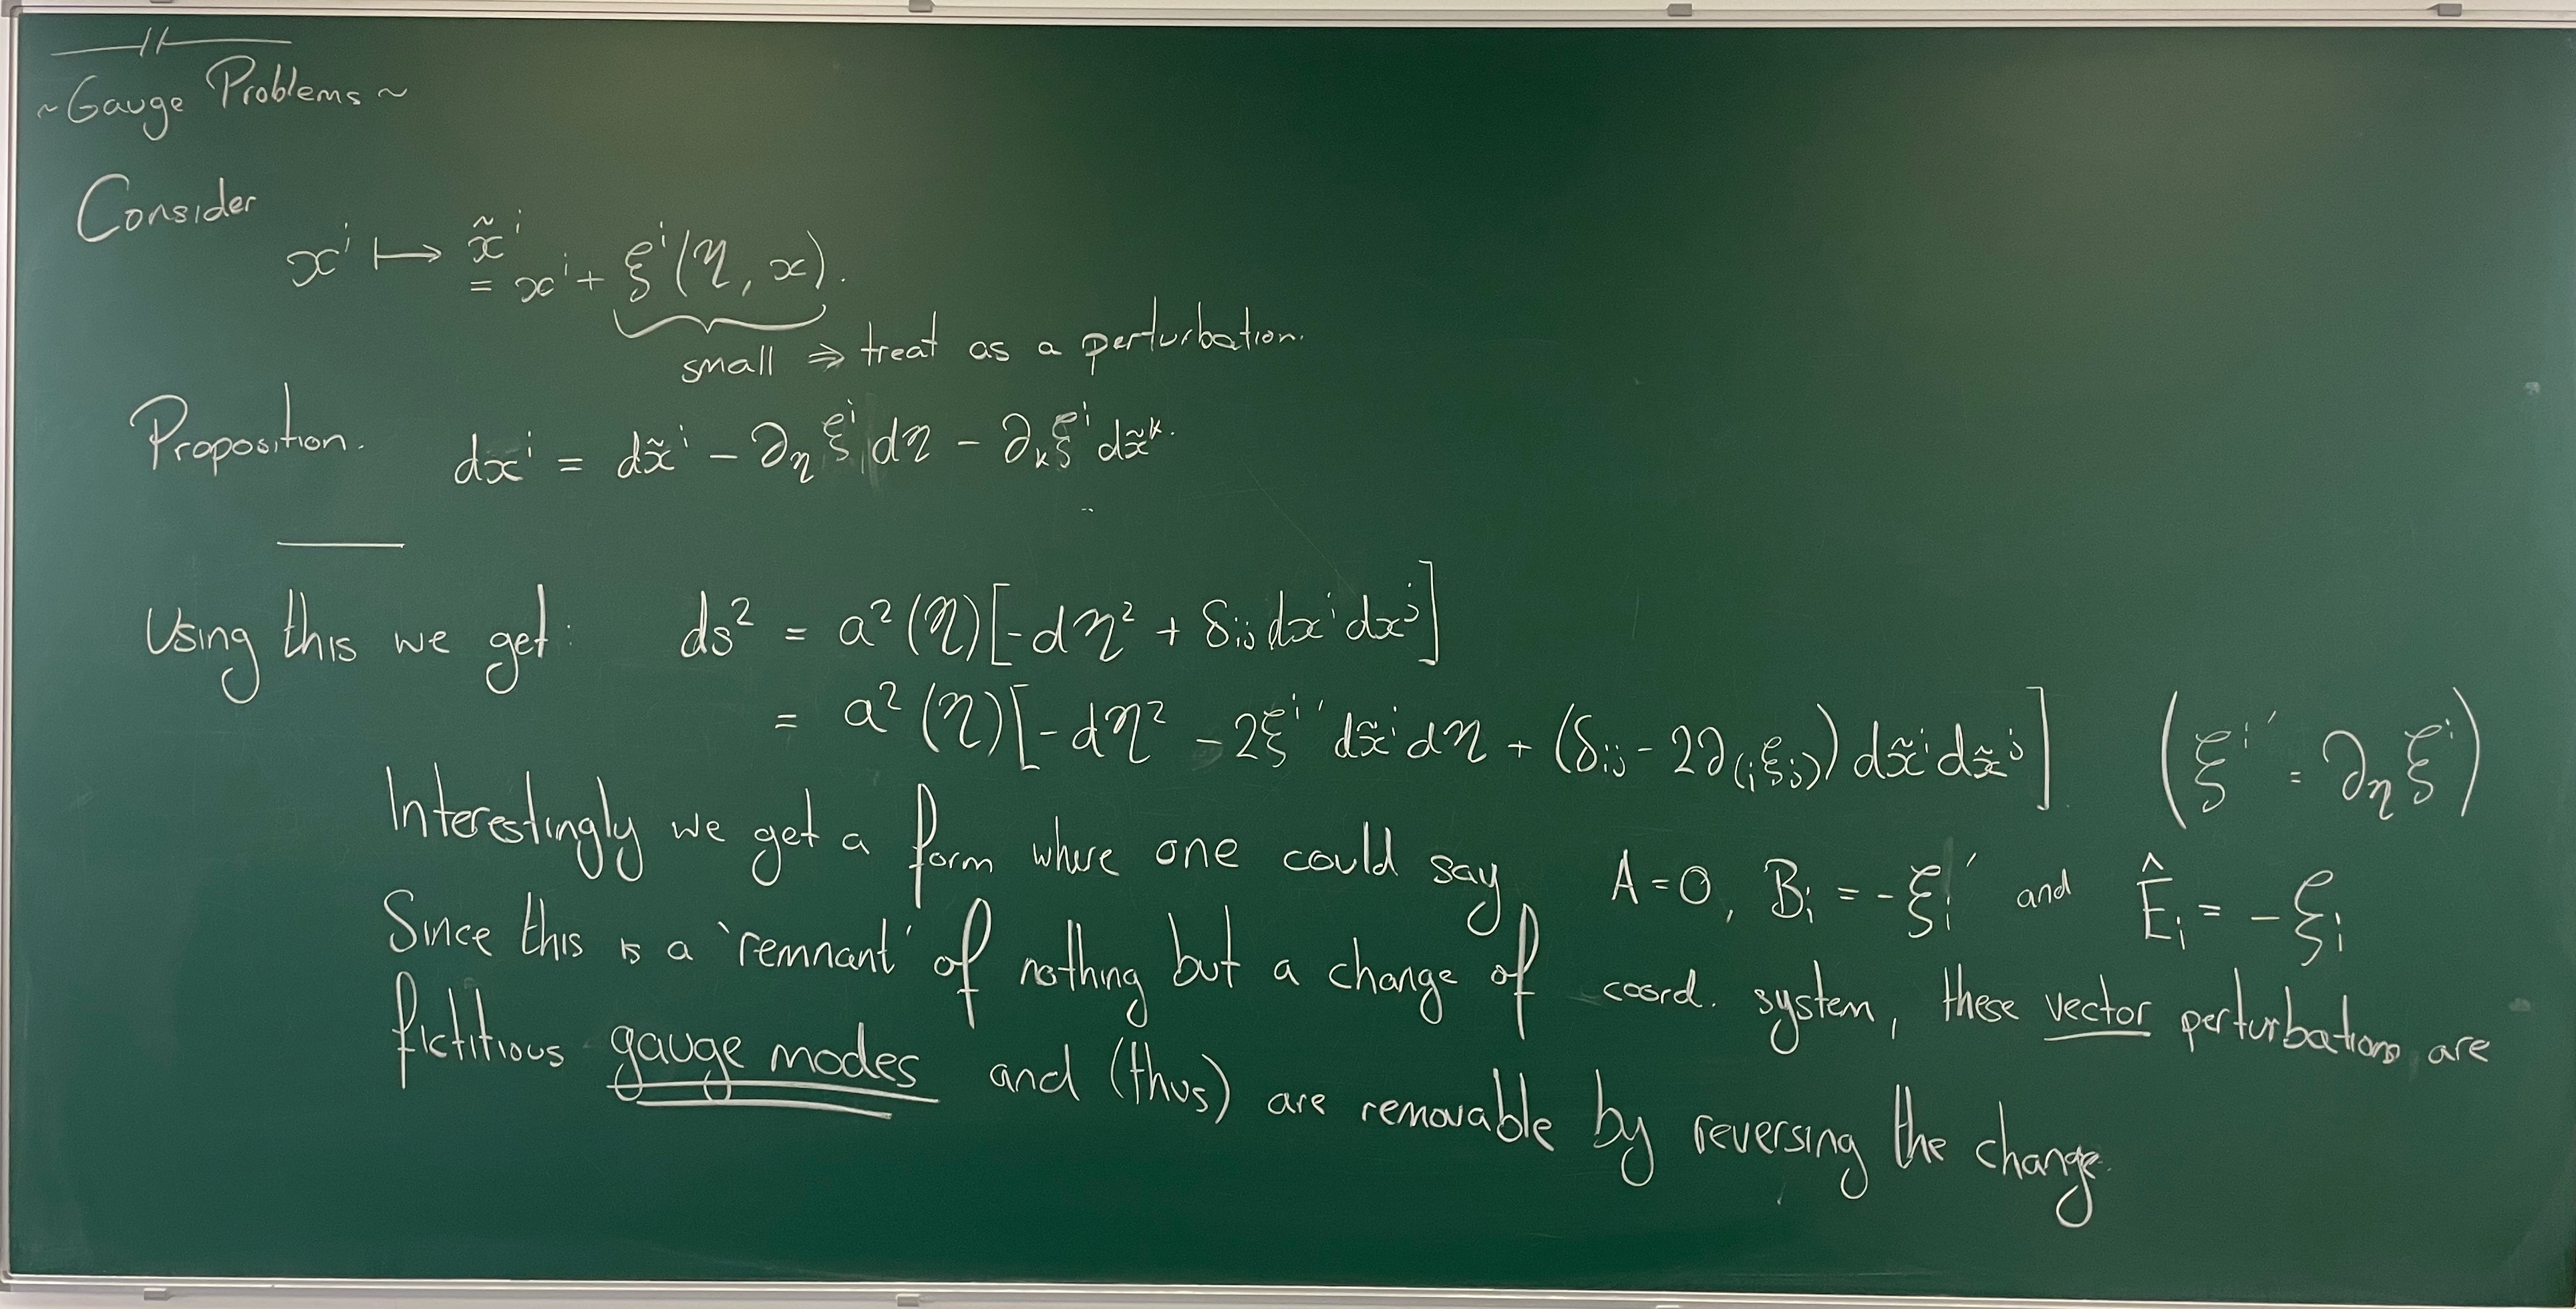 ~Gauge Problems~
Consider
xⁱ ⟼ x̃ⁱ
= xⁱ + ξⁱ(η, x).
small ⇒ treat as a perturbation.
Proposition. dxⁱ = dx̃ⁱ − ∂_η ξⁱ dη − ∂ₖξⁱ dx̃ᵏ.
Using this we get: ds² = a²(η)[-dη² + δᵢⱼ dxⁱ dxʲ]
= a²(η)[-dη² − 2ξⁱ′ dx̃ⁱ dη + (δᵢⱼ − 2∂₍ᵢξⱼ₎) dx̃ⁱ dx̃ʲ] (ξⁱ′ = ∂_η ξⁱ)
Interestingly we get a form where one could say A=0, Bᵢ = -ξᵢ′ and Êᵢ = −ξᵢ
Since this is a 'remnant' of nothing but a change of coord. system, these vector perturbations are
fictitious gauge modes and (thus) are removable by reversing the change.